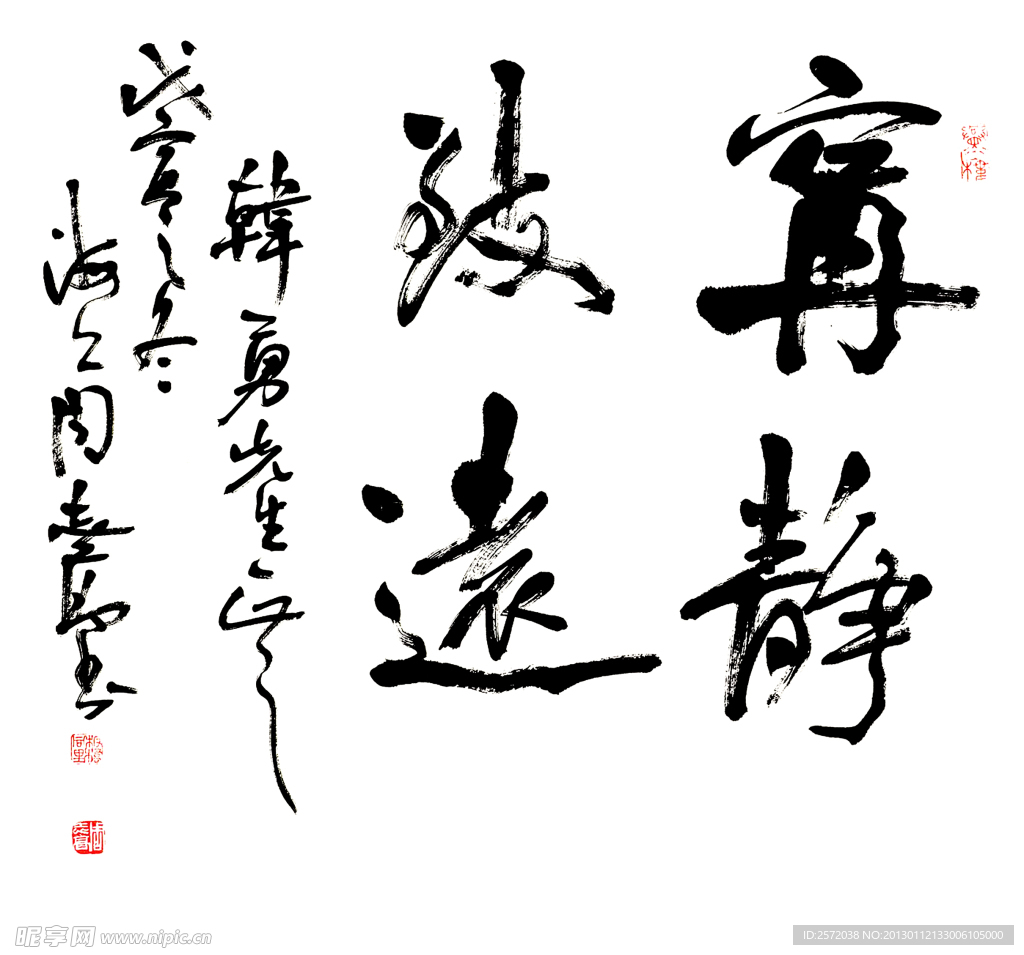 寧靜
致遠
韓勇先生正之
戊寅之冬
海上周慧珺書
昵享网 www.nipic.cn
ID:2572038 NO:20130112133006105000